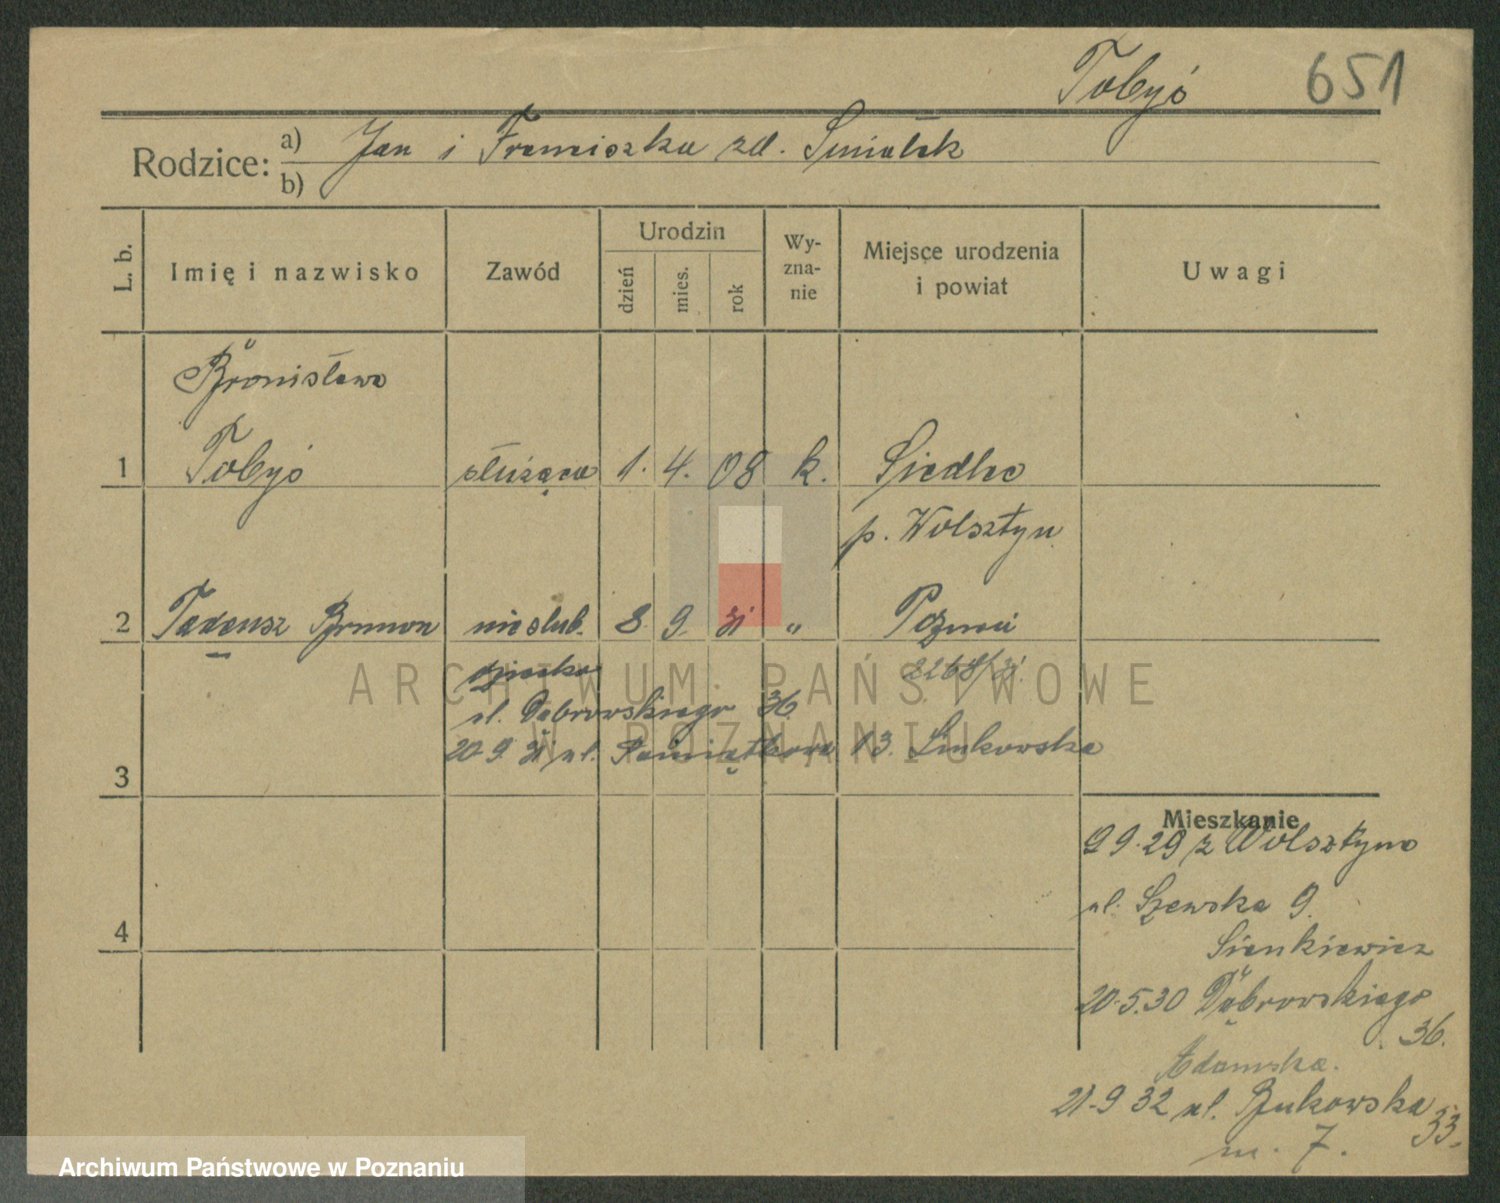 Tobyś 651
Rodzice: a) Jan i Franciszka zd. Smiałek
b)
L. b. Imię i nazwisko Zawód Urodzin dzień mies. rok Wy-zna-nie Miejsce urodzenia i powiat Uwagi
Bronisława
1 Tobyś służąca 1. 4. 08 k. Siedlec
p. Wolsztyn
2 Tadeusz Brunon nieślub. 8. 9. 31 " Poznań
dziecko 2268/31.
ul. Dąbrowskiego 36
20.9.31 ul. Pamiątkowa 13. Linkowska
3
Mieszkanie
9.29 z Wolsztyna
ul. Szewska 9.
4
Sienkiewicz
20.5.30 Dąbrowskiego
36.
Adamska.
21-9 32 ul. Bukowska 33.
m. 7.
ARCHIWUM PAŃSTWOWE
W POZNANIU
Archiwum Państwowe w Poznaniu